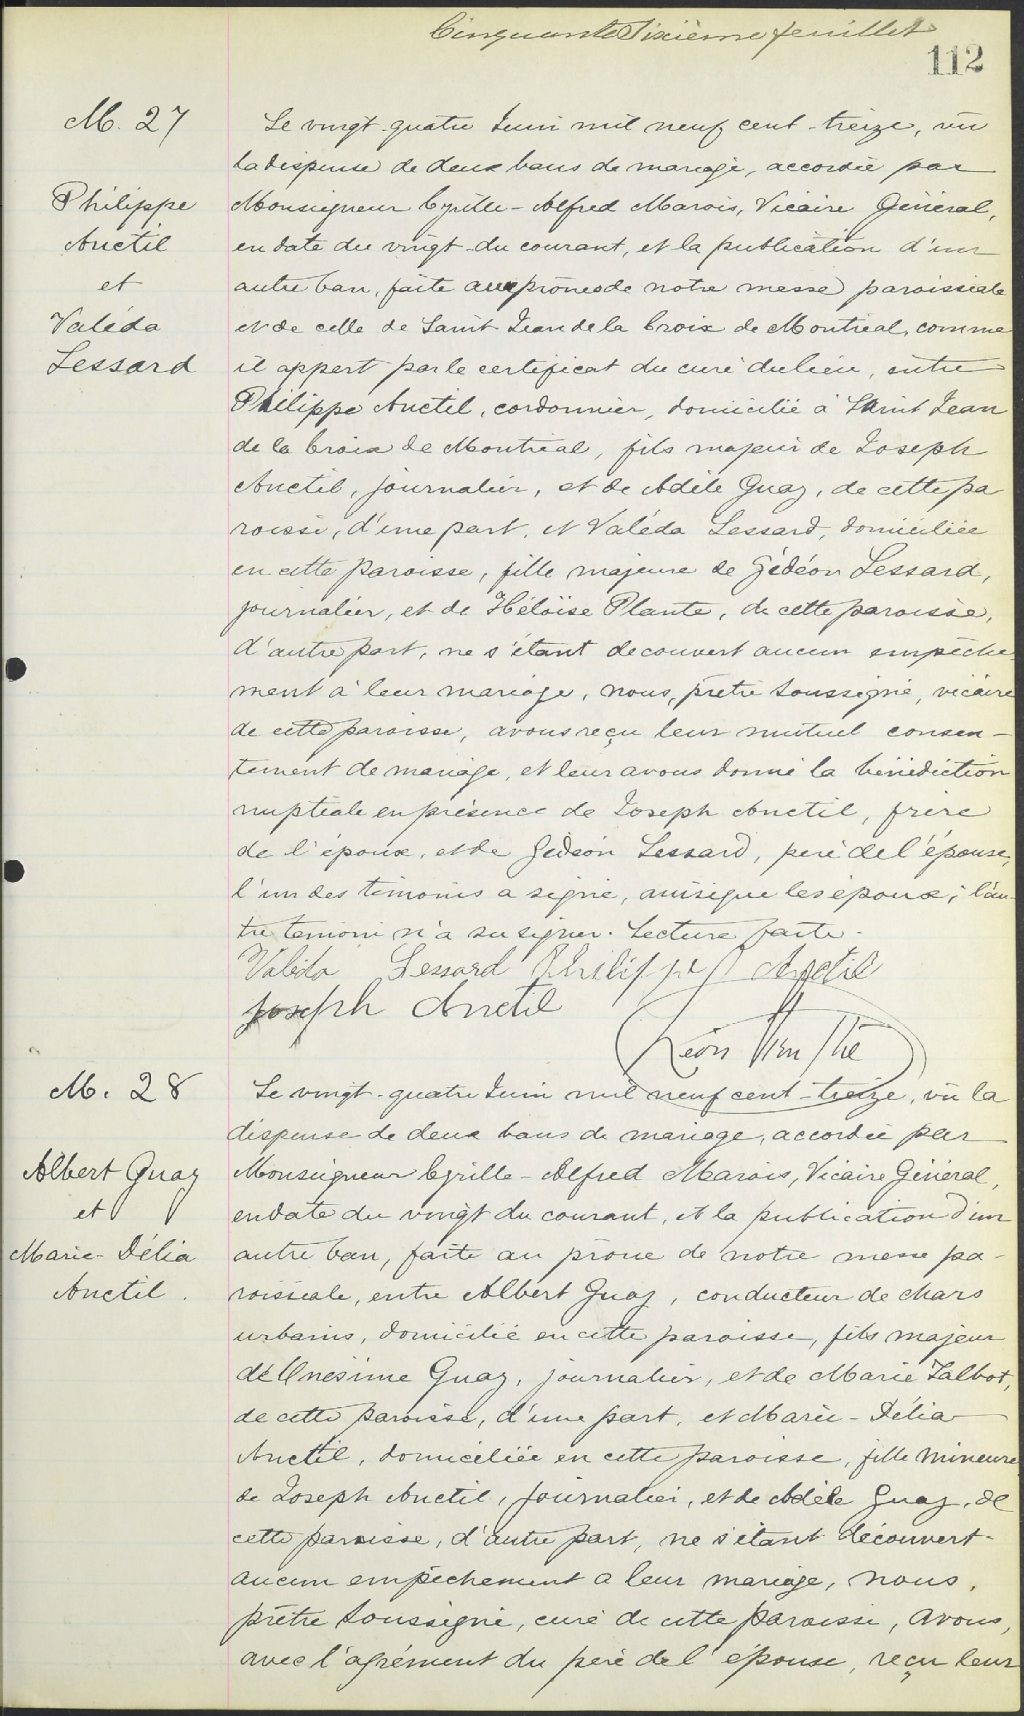 Cinquante Sixième feuillet
112
M. 27
Philippe
Anctil
et
Valéda
Lessard
Le vingt-quatre Juin mil neuf cent-treize, vû
la dispense de deux bans de mariage, accordée par
Monseigneur Cyrille-Alfred Marois, Vicaire Général,
en date du vingt du courant, et la publication d'un
autre ban, faite aux prônes de notre messe paroissiale
et de celle de Saint Jean de la Croix de Montréal, comme
il appert par le certificat du curé du lieu, entre
Philippe Anctil, cordonnier, domicilié à Saint Jean
de la Croix de Montréal, fils majeur de Joseph
Anctil, journalier, et de Adèle Guay, de cette pa
roisse, d'une part, et Valéda Lessard, domiciliée
en cette paroisse, fille majeure de Gédéon Lessard,
journalier, et de Héloïse Plante, de cette paroisse,
d'autre part, ne s'étant découvert aucun empêche-
ment à leur mariage, nous, prêtre soussigné, vicaire
de cette paroisse, avons reçu leur mutuel consen-
tement de mariage, et leur avons donné la bénédiction
nuptiale en présence de Joseph Anctil, frère
de l'époux, et de Gédéon Lessard, père de l'épouse,
l'un des témoins a signé, ainsi que les époux; l'au-
tre témoin n'a su signer. Lecture faite.
Valéda Lessard Philippe Anctil
Joseph Anctil
Léon Ptre
M. 28
Albert Guay
et
Marie-Délia
Anctil.
Le vingt-quatre Juin mil neuf cent-treize, vû la
dispense de deux bans de mariage, accordée par
Monseigneur Cyrille-Alfred Marois, Vicaire Général,
en date du vingt du courant, et la publication d'un
autre ban, faite au prône de notre messe pa-
roissiale, entre Albert Guay, conducteur de chars
urbains, domicilié en cette paroisse, fils majeur
de Onésime Guay, journalier, et de Marie Talbot,
de cette paroisse, d'une part, et Marie-Délia
Anctil, domiciliée en cette paroisse, fille mineure
de Joseph Anctil, journalier, et de Adèle Guay, de
cette paroisse, d'autre part, ne s'étant découvert
aucun empêchement à leur mariage, nous,
prêtre soussigné, curé de cette paroisse, avons,
avec l'agrément du père de l'épouse, reçu leur